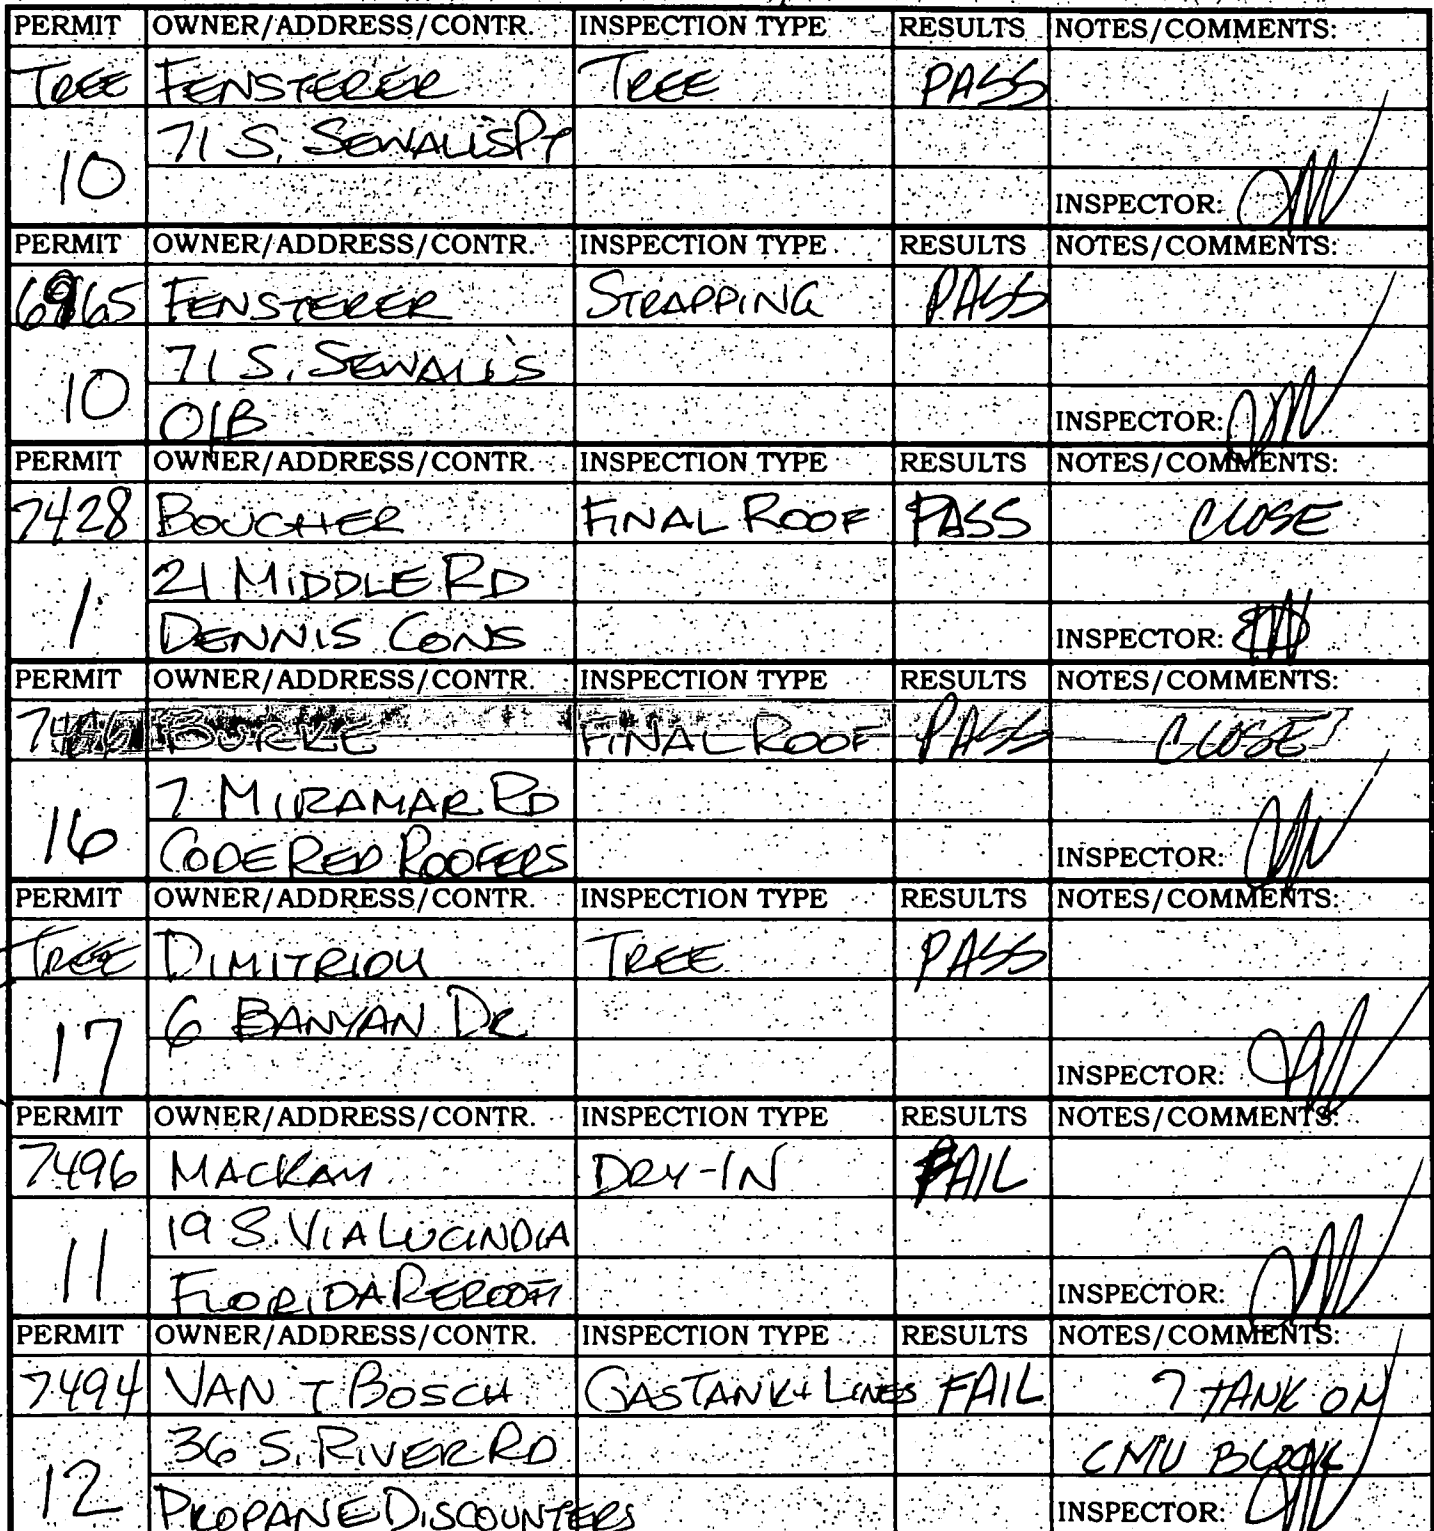 PERMIT OWNER/ADDRESS/CONTR. INSPECTION TYPE RESULTS NOTES/COMMENTS:
TREE FENSTERER TREE PASS
71 S. SEWALLS PT
10
INSPECTOR:
PERMIT OWNER/ADDRESS/CONTR. INSPECTION TYPE RESULTS NOTES/COMMENTS:
6965 FENSTERER STRAPPING PASS
71 S. SEWALL'S
10
O/B INSPECTOR:
PERMIT OWNER/ADDRESS/CONTR. INSPECTION TYPE RESULTS NOTES/COMMENTS:
7428 BOUCHER FINAL ROOF PASS CLOSE
21 MIDDLE RD
1
DENNIS CONS INSPECTOR:
PERMIT OWNER/ADDRESS/CONTR. INSPECTION TYPE RESULTS NOTES/COMMENTS:
BURKE FINAL ROOF PASS CLOSE
7 MIRAMAR RD
16
CODE RED ROOFERS INSPECTOR:
PERMIT OWNER/ADDRESS/CONTR. INSPECTION TYPE RESULTS NOTES/COMMENTS:
TREE DIMITRIOU TREE PASS
6 BANYAN DR
17
INSPECTOR:
PERMIT OWNER/ADDRESS/CONTR. INSPECTION TYPE RESULTS NOTES/COMMENTS:
7496 MACKAY DRY-IN FAIL
19 S. VIA LUCINDIA
11
FLORIDA REROOF INSPECTOR:
PERMIT OWNER/ADDRESS/CONTR. INSPECTION TYPE RESULTS NOTES/COMMENTS:
7494 VAN T BOSCH GAS TANK + LINES FAIL ? TANK ON
36 S. RIVER RD CMU BLOCK
12
PROPANE DISCOUNTERS INSPECTOR: